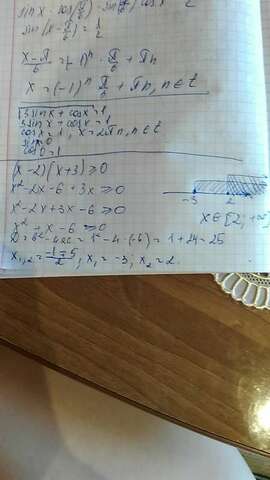 sin x · cos(π/6) - sin π/6 cos x = 1/2
sin(x - π/6) = 1/2
x - π/6 = (-1)ⁿ · π/6 + πn
x = (-1)ⁿ · π/6 + πn, n ∈ z
3 sin x + cos x = 1
3 sin x + cos x = 1
cos x = 1, x = 2πn, n ∈ z
sin = 0
cos 0 = 1
(x - 2)(x + 3) ≥ 0
x² - 2x - 6 + 3x ≥ 0
x² - 2x + 3x - 6 ≥ 0
x² + x - 6 ≥ 0
D = b² - 4ac = 1² - 4 · (-6) = 1 + 24 = 25
x₁,₂ = (-1 ± 5)/2; x₁ = -3; x₂ = 2
-3 2
x ∈ [2; +∞